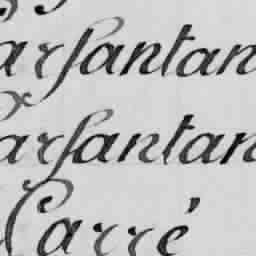 arſantan
arſantan
Carré